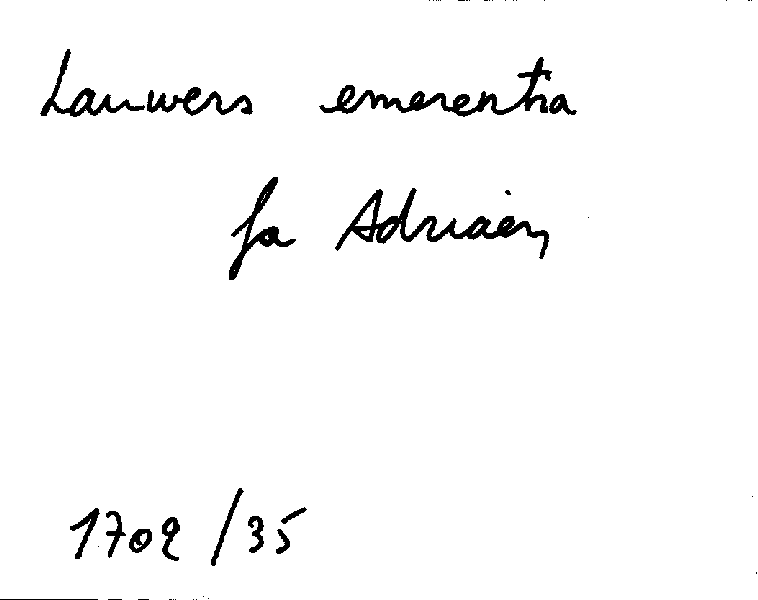 Lauwers emerentia
fa Adriaen
1702 /35